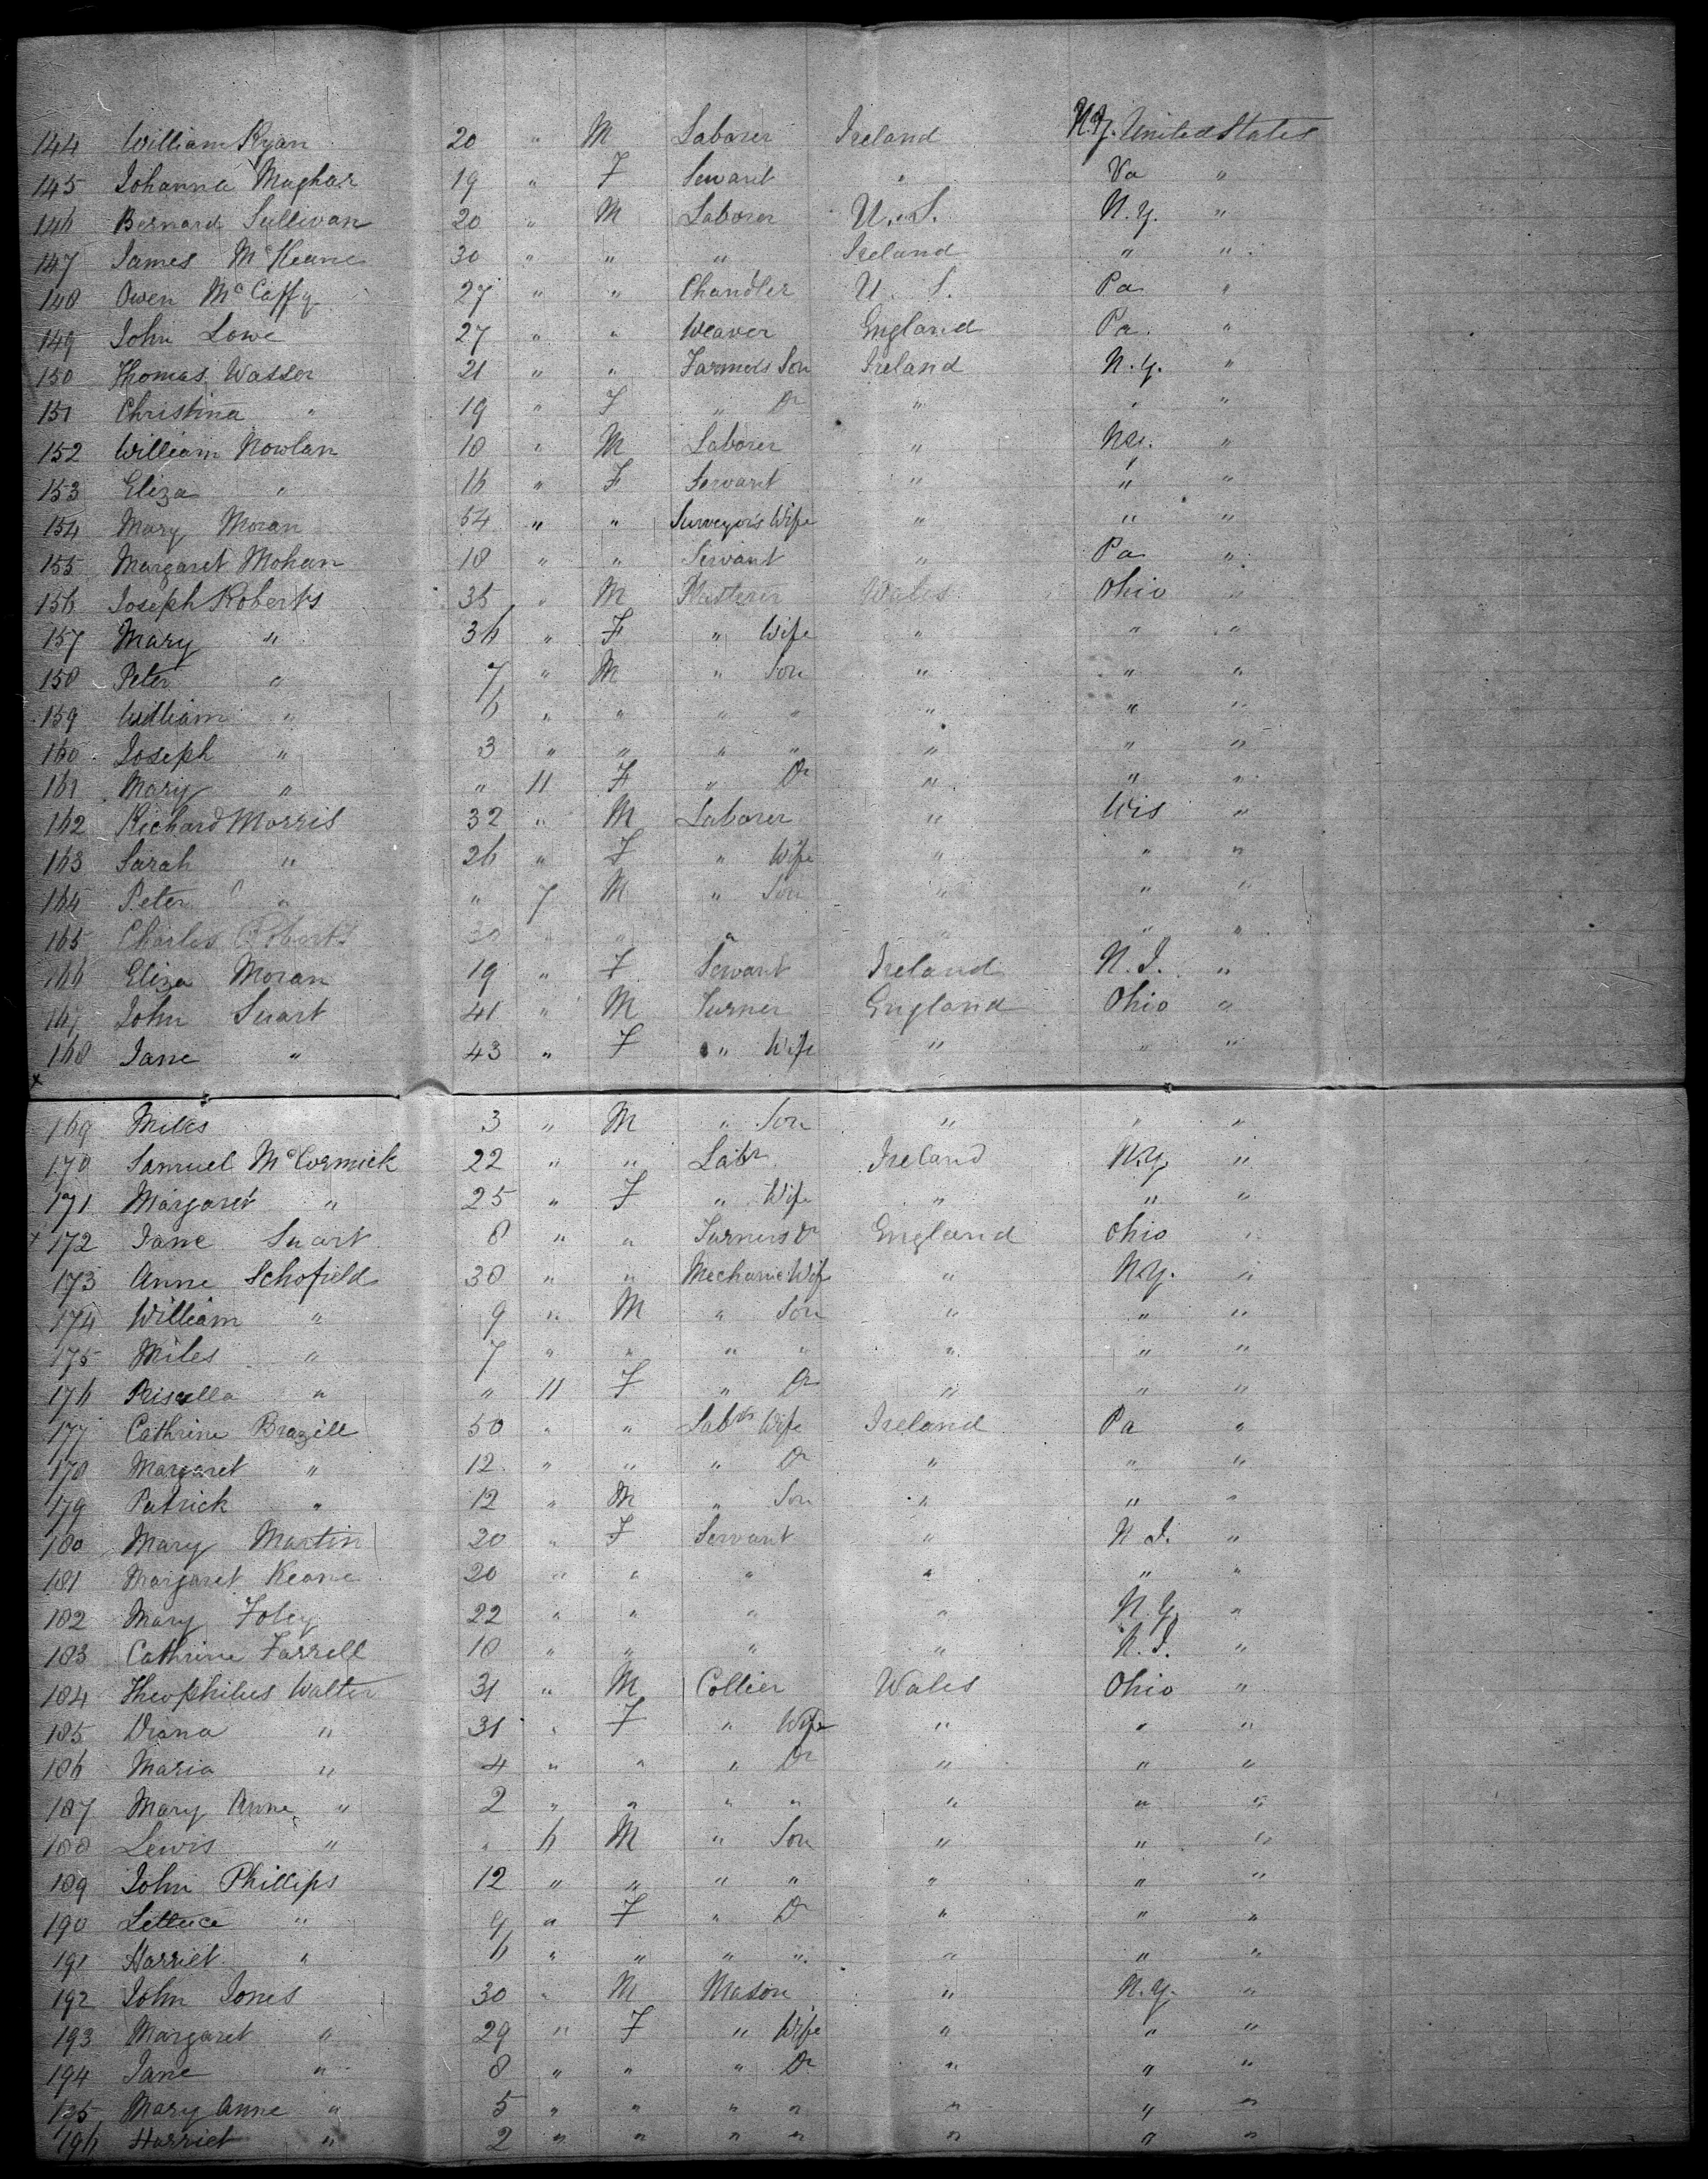 144 William Ryan 20 " M Laborer Ireland N.Y. United States
145 Johanna Maghar 19 " F Servant " Va "
146 Bernard Sullivan 20 " M Laborer U.S. N.Y. "
147 James McKeane 30 " " " Ireland " "
148 Owen McCaffy 27 " " Chandler U.S. Pa "
149 John Lowe 27 " " Weaver England Pa. "
150 Thomas Wasser 21 " " Farmers Son Ireland N.Y. "
151 Christina " 19 " F " Dr " " "
152 William Nowlan 18 " M Laborer " "
153 Eliza " 16 " F Servant " " "
154 Mary Moran 54 " " Surveyor's Wife " " "
155 Margaret Mohan 18 " " Servant " Pa "
156 Joseph Roberts 35 " M Wales Ohio "
157 Mary " 36 " F " Wife " " "
158 Peter " 7 " M " Son " " "
159 William " 6 " " " " " " "
160 Joseph " 3 " " " " " " "
161 Mary " " 11 F " Dr " " "
162 Richard Morris 32 " M Laborer " Wis "
163 Sarah " 26 " F " Wife " " "
164 Peter " " 7 M " Son " " "
165 Charles Roberts " " " " " "
166 Eliza Moran 19 " F Servant Ireland N.J. "
167 John Suart 41 " M Turner England Ohio "
168 Jane " 43 " F " Wife " " "
x
169 Miles 3 " M " Son " " "
170 Samuel McCormick 22 " " Labr Ireland N.Y. "
171 Margaret " 25 " F " Wife " " "
x 172 Jane Suart 8 " " Turners Dr England Ohio "
173 Anne Schofield 30 " " Mechanic Wife " N.Y. "
174 William " 9 " M " Son " " "
175 Miles " 7 " " " " " " "
176 Priscilla " " 11 F " Dr " " "
177 Cathrine Brazill 50 " " Labrs Wife Ireland Pa "
178 Margaret " 12 " " " Dr " " "
179 Patrick " 12 " M " Son " " "
180 Mary Martin 20 " F Servant " N.J. "
181 Margaret Keane 20 " " " " " "
182 Mary Foley 22 " " " " N.Y. "
183 Cathrine Farrell 18 " " " " N.J. "
184 Theophilus Walter 31 " M Collier Wales Ohio "
185 Diana " 31 " F " Wife " " "
186 Maria " 4 " " " Dr " " "
187 Mary Anne " 2 " " " " " " "
188 Lewis " " 6 M " Son " " "
189 John Phillips 12 " " " " " " "
190 Lettuce " 9 " F " Dr " " "
191 Harriet " 6 " " " " " " "
192 John Jones 30 " M Mason " N.Y. "
193 Margaret " 29 " F " Wife " " "
194 Jane " 8 " " " Dr " " "
195 Mary Anne " 5 " " " " " " "
196 Harriet " 2 " " " " " " "